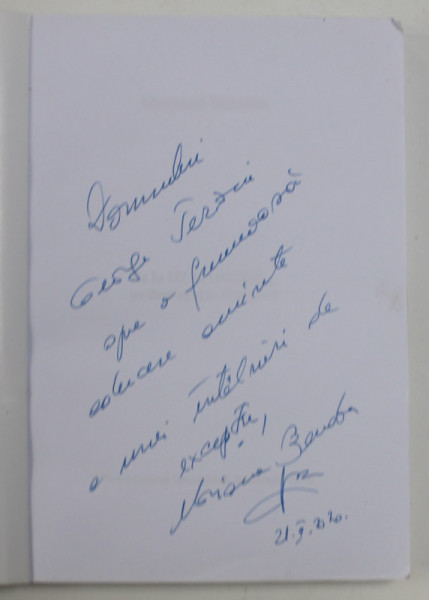 Domnului
George Terziu
spre o frumoasă
aducere aminte
a unei întâlniri de
excepție,
Mariana Banda
21.X.2020.